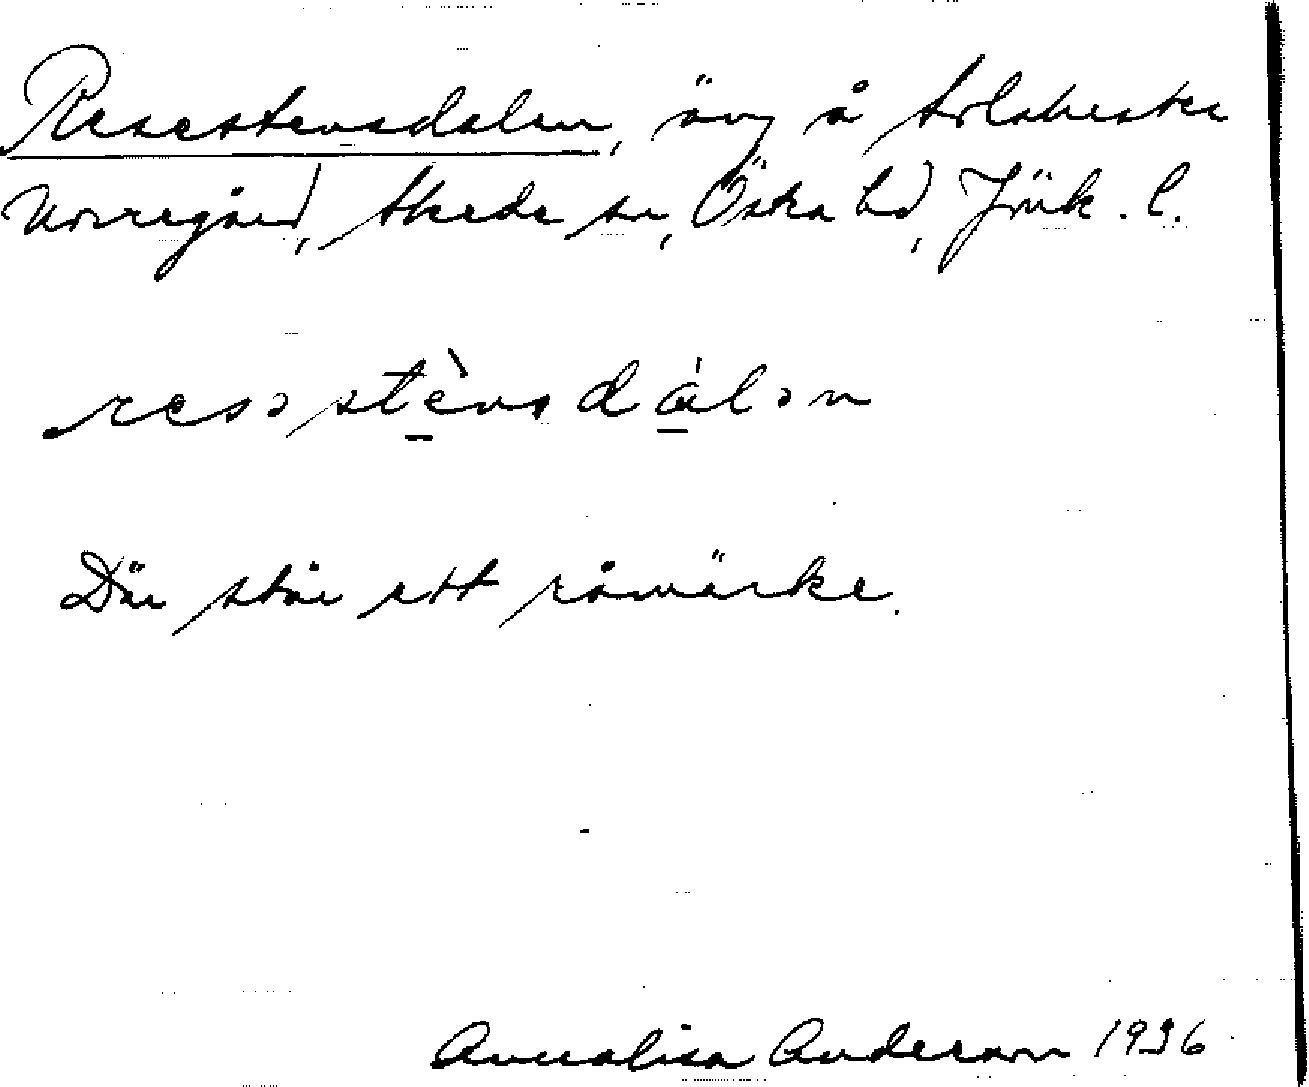 Resestensdalen, äng å Solaheska
Norregård, Skede sn, Östra hd, Jönk. l.
resəstènsdálən
Där står ett råmärke.
Annalisa Anderson 1936